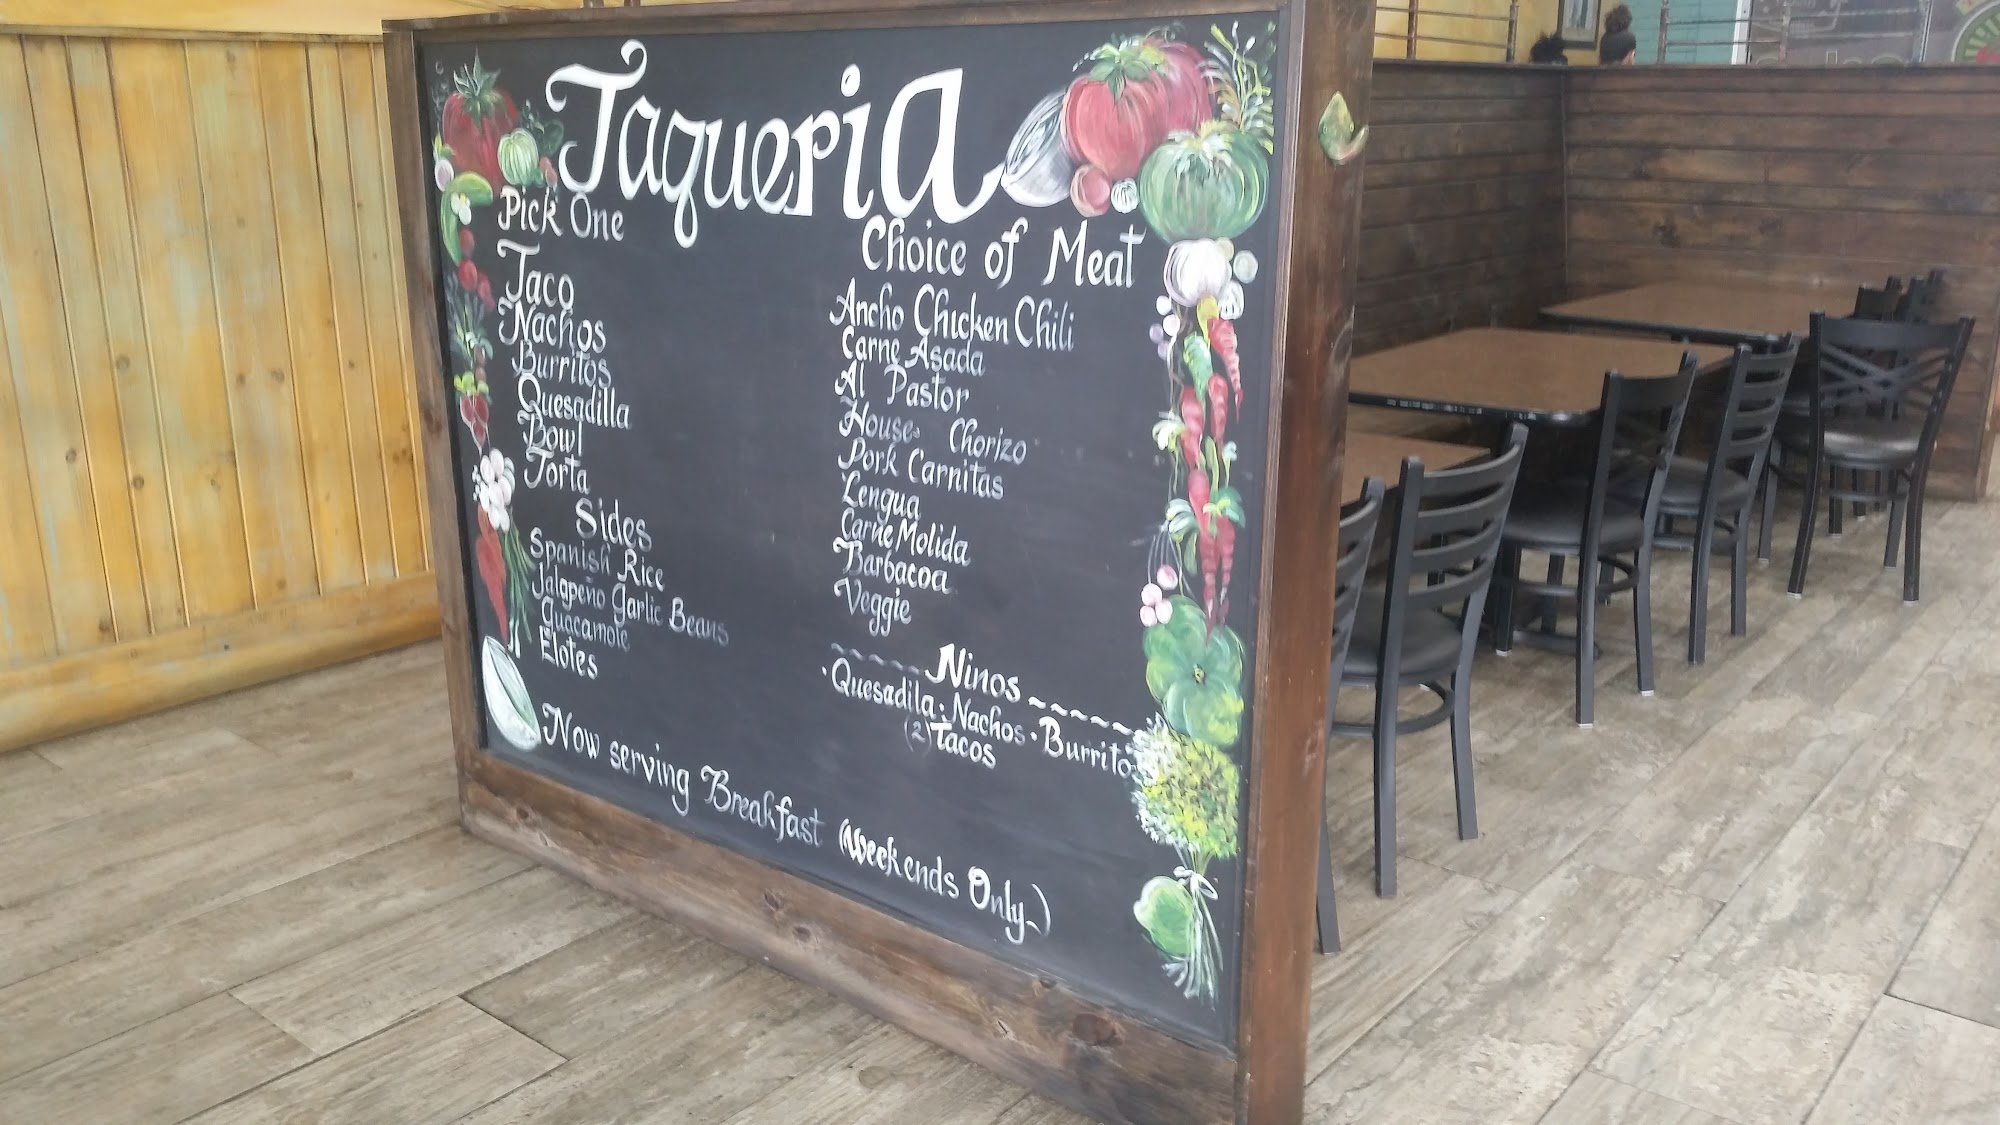 Taqueria
Pick One
Taco
Nachos
Burritos
Quesadilla
Bowl
Torta
Sides
Spanish Rice
Jalapeño Garlic Beans
Guacamole
Elotes
Choice of Meat
Ancho Chicken Chili
Carne Asada
Al Pastor
House Chorizo
Pork Carnitas
Lengua
Carne Molida
Barbacoa
Veggie
Ninos
· Quesadila · Nachos · Burrito
(2) Tacos
Now serving Breakfast (Weekends Only)